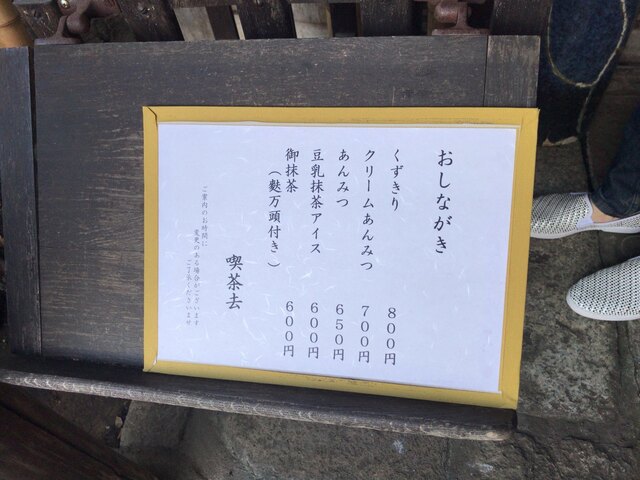 おしながき
くずきり 800円
クリームあんみつ 700円
あんみつ 650円
豆乳抹茶アイス 600円
御抹茶 600円
(麩万頭付き)
喫茶去
ご案内のお時間に
変更のある場合がございます
ご了承くださいませ